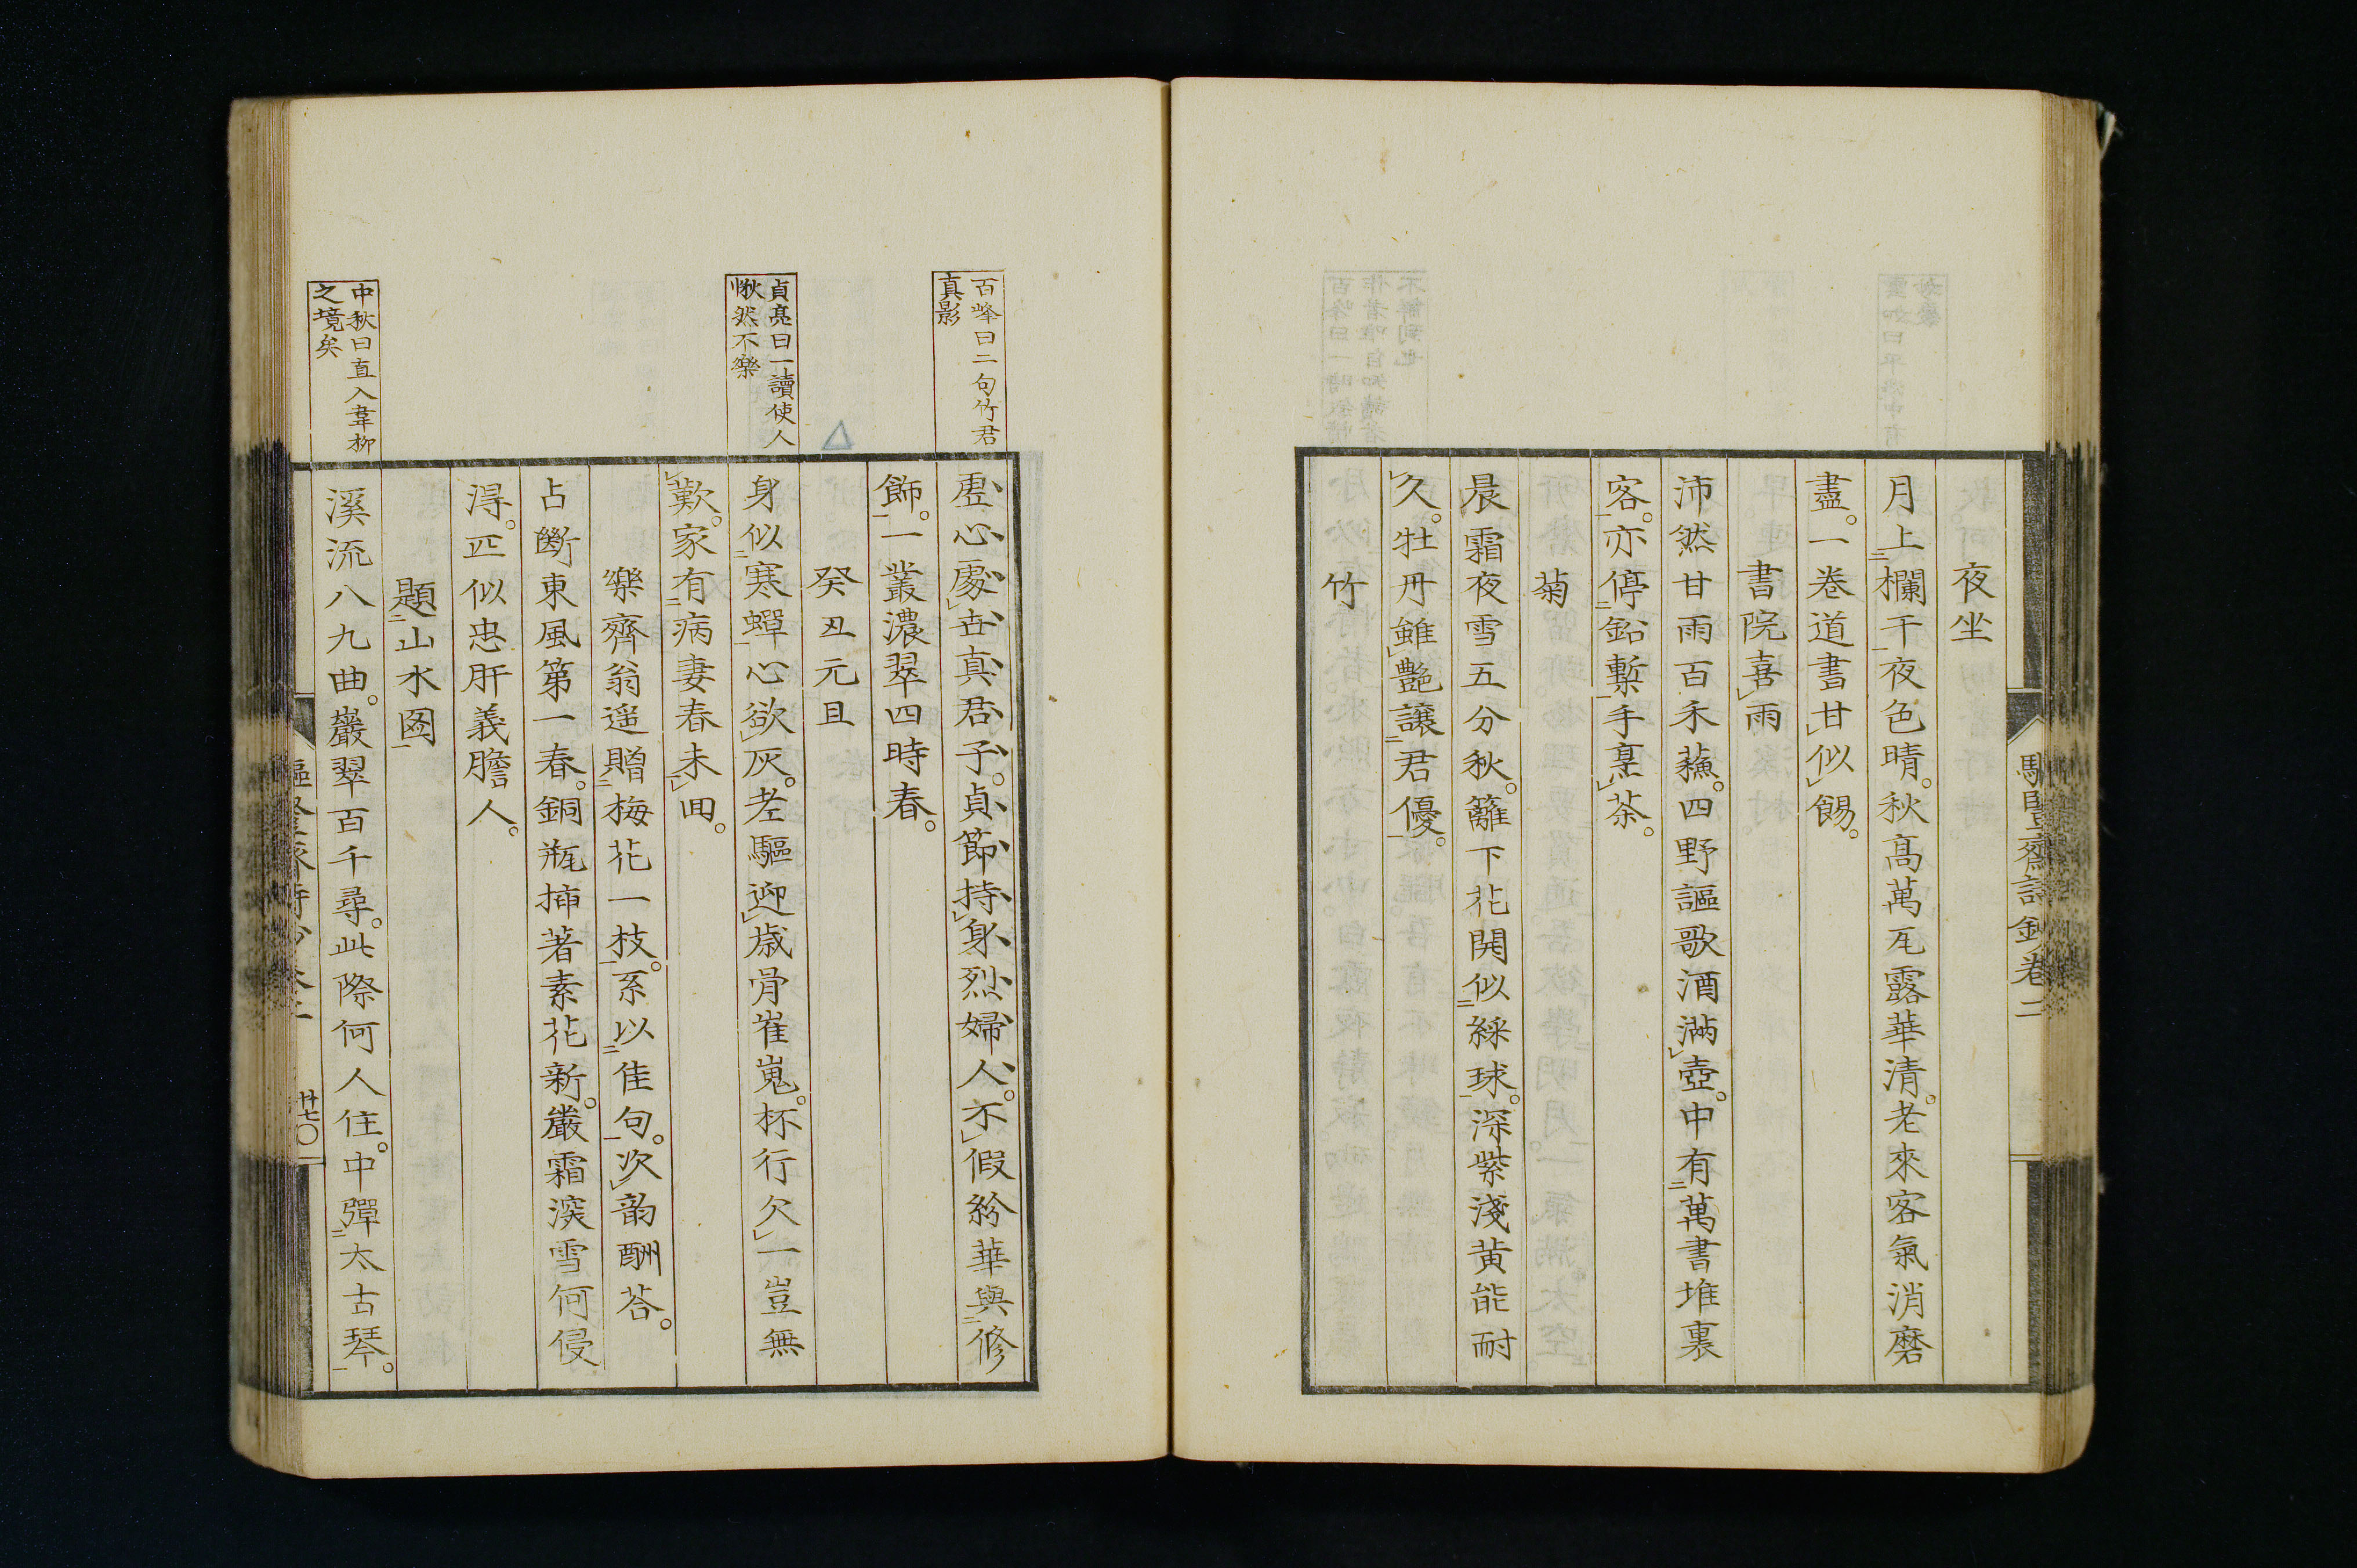 夜坐
月上欄干夜色晴。秋高萬瓦露華清。老來客氣消磨
盡。一卷道書甘似餳。
書院喜雨
沛然甘雨百禾蘓。四野謳歌酒滿壺。中有萬書堆裏
客。亦停鉛槧手烹茶。
菊
晨霜夜雪五分秋。籬下花開似綵球。深紫淺黄能耐
久。牡丹雖艷讓君優。
竹
百峰曰二句竹君
真影
虛心處世真君子。貞節持身烈婦人。不假紛華與修
飾。一叢濃翠四時春。
癸丑元旦
貞亮曰一讀使人
愀然不樂
身似寒蟬心欲灰。老驅迎歲骨崔嵬。杯行欠一豈無
歎。家有病妻春未回。
樂齊翁遥贈梅花一枝。系以佳句。次韵酬荅。
占斷東風第一春。銅瓶揷著素花新。嚴霜深雪何侵
得。正似忠肝義膽人。
題山水圖
中秋曰直入韋柳
之境矣
溪流八九曲。巖翠百千尋。此際何人住。中彈太古琴。
廿七